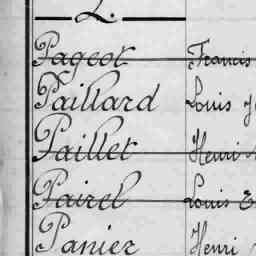 P.
Pageot Francis
Paillard Louis
Paillet Henri
Pairel Louis
Panier Henri